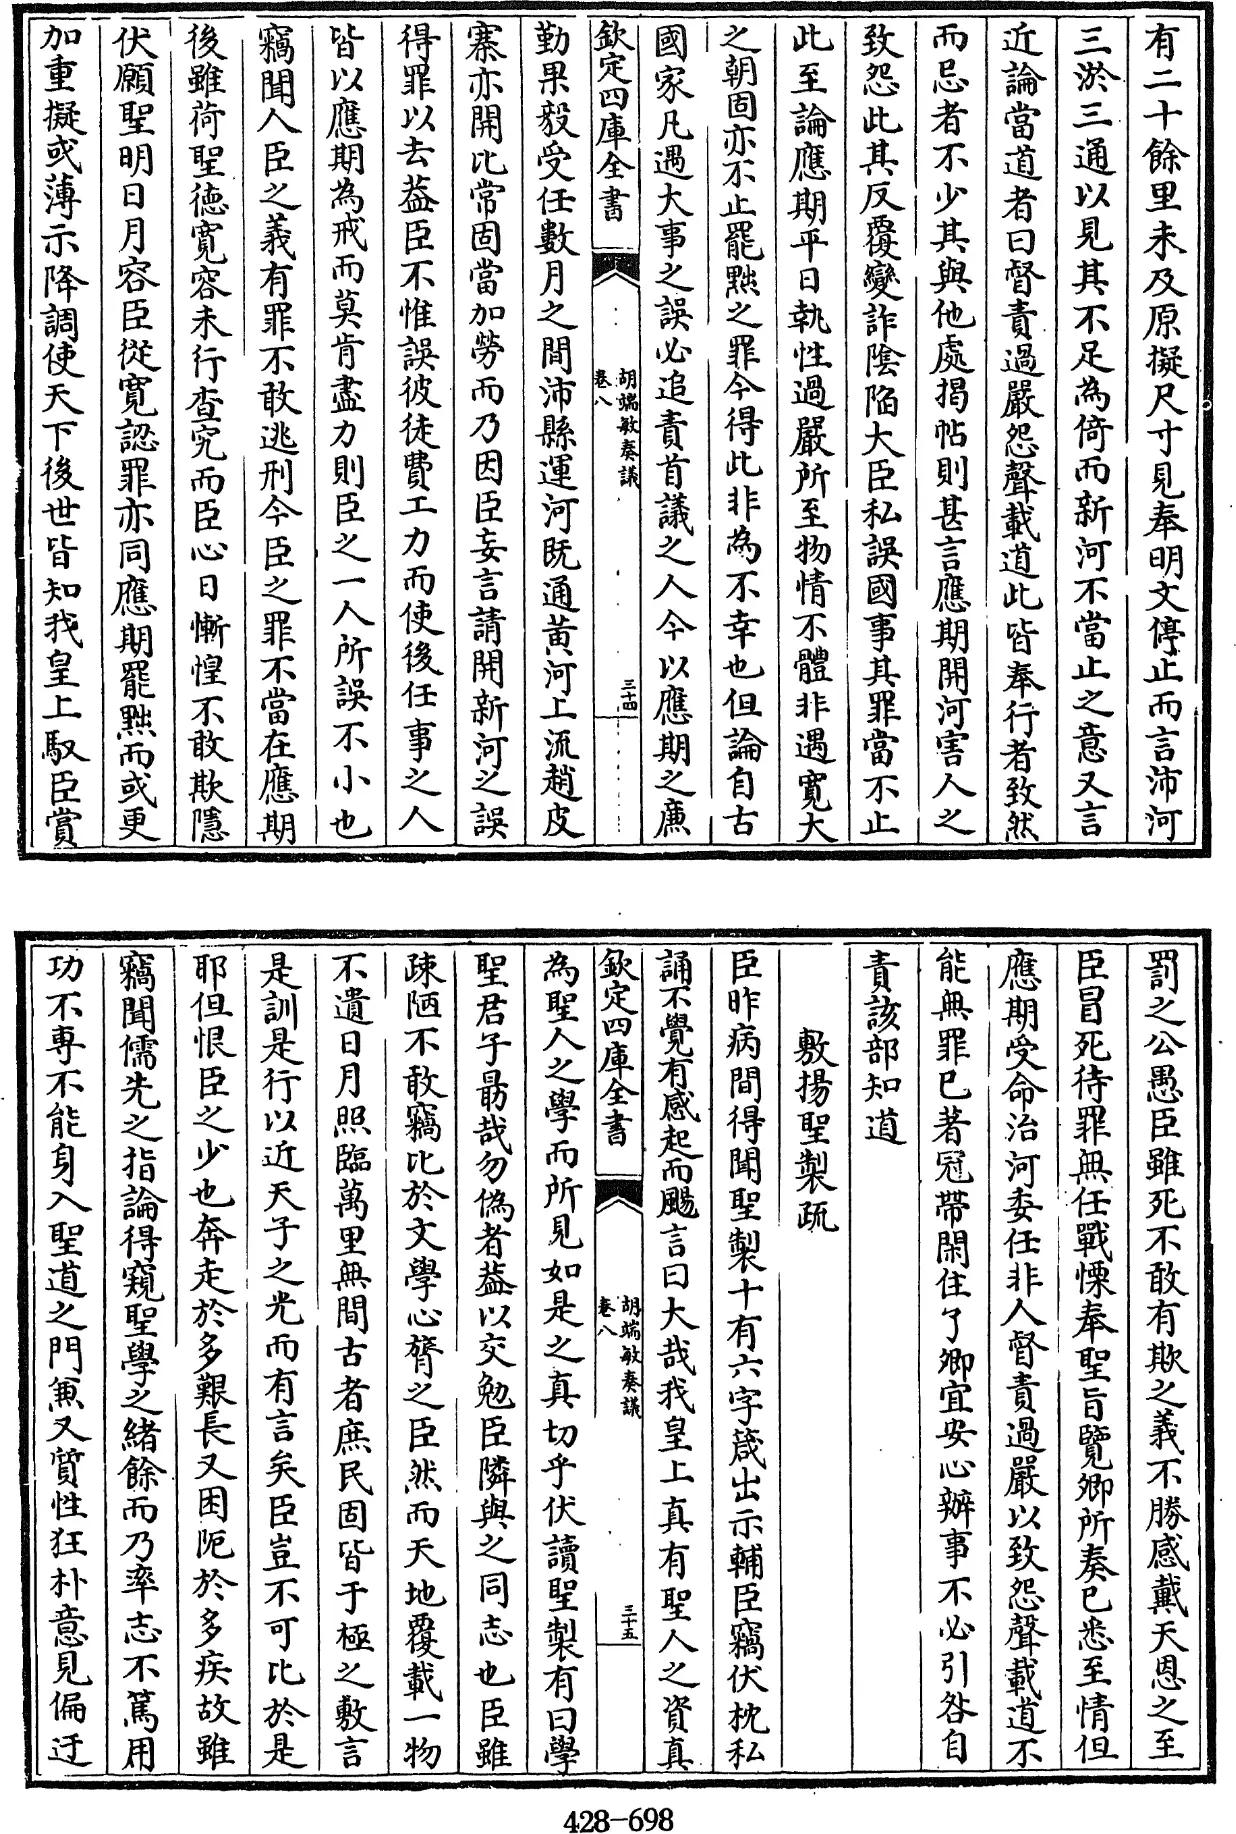 有二十餘里未及原擬尺寸見奉明文停止而言沛河
三淤三通以見其不足為倚而新河不當止之意又言
近論當道者曰督責過嚴怨聲載道此皆奉行者致然
而忌者不少其與他處揭帖則甚言應期開河害人之
致怨此其反覆變詐陰陷大臣私誤國事其罪當不止
此至論應期平日執性過嚴所至物情不體非遇寬大
之朝固亦不止罷黜之罪今得此非為不幸也但論自古
國家凡遇大事之誤必追責首議之人今以應期之廉
欽定四庫全書
胡端敏奏議
卷八
三十四
勤果毅受任數月之間沛縣運河既通黃河上流趙皮
寨亦開比常固當加勞而乃因臣妄言請開新河之誤
得罪以去葢臣不惟誤彼徒費工力而使後任事之人
皆以應期為戒而莫肯盡力則臣之一人所誤不小也
竊聞人臣之義有罪不敢逃刑今臣之罪不當在應期
後雖荷聖德寬容未行查究而臣心日慚惶不敢欺隱
伏願聖明日月容臣從寬認罪亦同應期罷黜而或更
加重擬或薄示降調使天下後世皆知我皇上馭臣賞
罰之公愚臣雖死不敢有欺之義不勝感戴天恩之至
臣冒死待罪無任戰慄奉聖旨覽卿所奏已悉至情但
應期受命治河委任非人督責過嚴以致怨聲載道不
能無罪已著冠帶閑住了卿宜安心辦事不必引咎自
責該部知道
敷揚聖製疏
臣昨病間得聞聖製十有六字箴出示輔臣竊伏枕私
誦不覺有感起而颺言曰大哉我皇上真有聖人之資真
欽定四庫全書
胡端敏奏議
卷八
三十五
為聖人之學而所見如是之真切乎伏讀聖製有曰學
聖君子勗哉勿偽者葢以交勉臣隣與之同志也臣雖
疎陋不敢竊比於文學心膂之臣然而天地覆載一物
不遺日月照臨萬里無間古者庶民固皆于極之敷言
是訓是行以近天子之光而有言矣臣豈不可比於是
耶但恨臣之少也奔走於多艱長又困阨於多疾故雖
竊聞儒先之指論得窺聖學之緒餘而乃率志不篤用
功不專不能身入聖道之門兼又質性狂朴意見偏迂
428-698